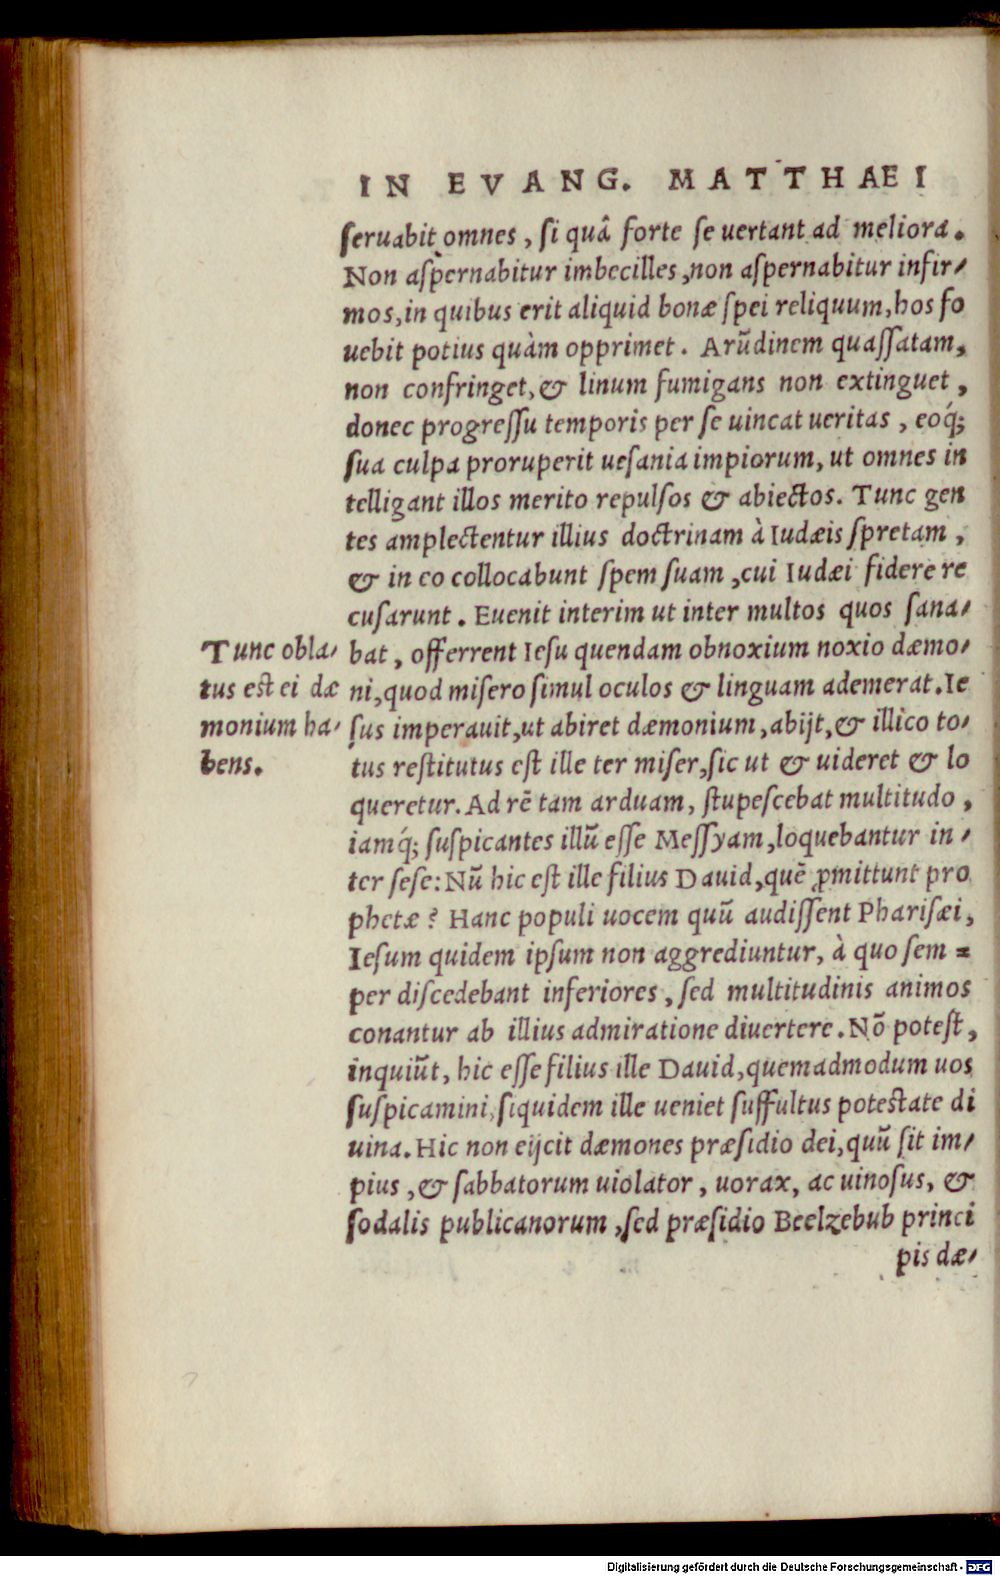 IN EVANG. MATTHAEI
ſeruabit omnes, ſi quâ forte ſe uertant ad meliora.
Non aſpernabitur imbecilles, non aſpernabitur infir⸗
mos, in quibus erit aliquid bonæ ſpei reliquum, hos fo
uebit potius quàm opprimet. Arũdinem quaſſatam,
non confringet, & linum fumigans non extinguet,
donec progreſſu temporis per ſe uincat ueritas, eoq́;
ſua culpa proruperit ueſania impiorum, ut omnes in
telligant illos merito repulſos & abiectos. Tunc gen
tes amplectentur illius doctrinam à Iudæis ſpretam,
& in eo collocabunt ſpem ſuam, cui Iudæi fidere re
cuſarunt. Euenit interim ut inter multos quos ſana⸗
Tunc obla⸗
tus est ei dæ
monium ha⸗
bens.
bat, offerrent Ieſu quendam obnoxium noxio dæmo⸗
ni, quod miſero ſimul oculos & linguam ademerat. Ie
ſus imperauit, ut abiret dæmonium, abijt, & illico to⸗
tus reſtitutus eſt ille ter miſer, ſic ut & uideret & lo
queretur. Ad rẽ tam arduam, ſtupeſcebat multitudo,
iamq́; ſuſpicantes illũ eſſe Meſſyam, loquebantur in⸗
ter ſeſe: Nũ hic eſt ille filius Dauid, quẽ ꝓmittunt pro
phetæ? Hanc populi uocem quũ audiſſent Phariſæi,
Ieſum quidem ipſum non aggrediuntur, à quo ſem⸗
per diſcedebant inferiores, ſed multitudinis animos
conantur ab illius admiratione diuertere. Nõ poteſt,
inquiũt, hic eſſe filius ille Dauid, quemadmodum uos
ſuſpicamini, ſiquidem ille ueniet ſuffultus potestate di
uina. Hic non eijcit dæmones præſidio dei, quũ ſit im⸗
pius, & ſabbatorum uiolator, uorax, ac uinoſus, &
ſodalis publicanorum, ſed præſidio Beelzebub princi
pis dæ⸗
Digitalisierung gefördert durch die Deutsche Forschungsgemeinschaft - DFG